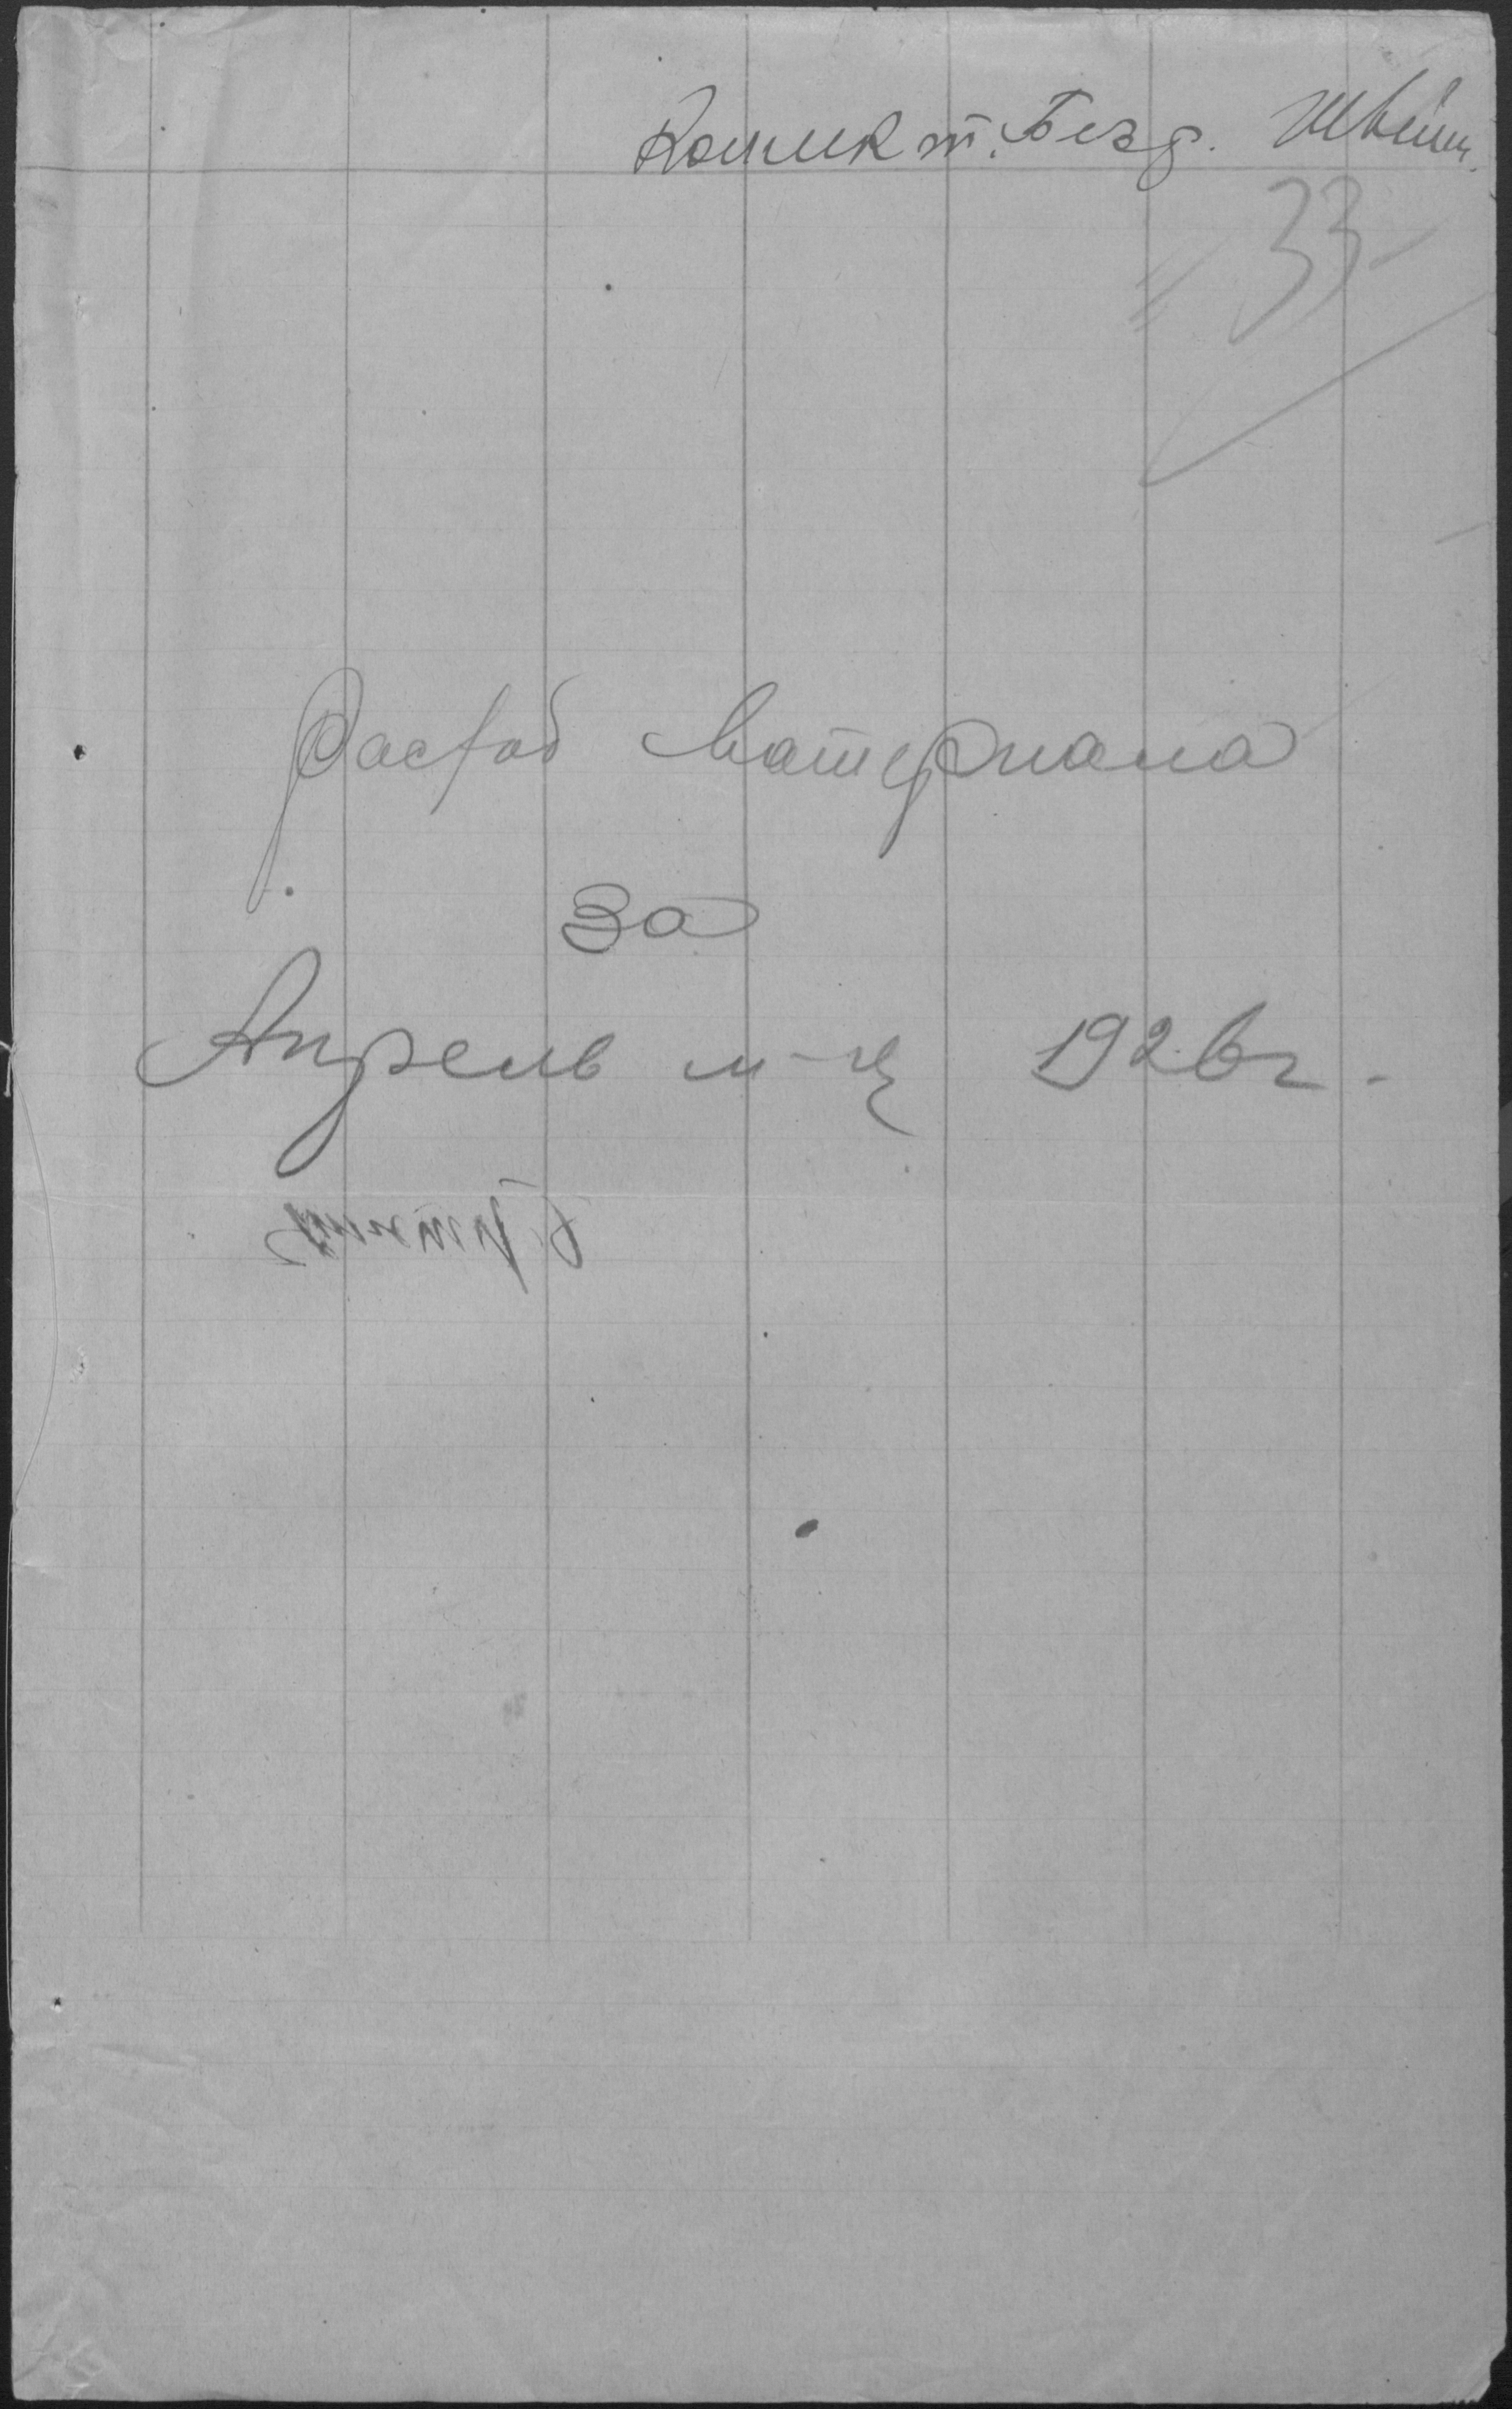 Комик т. Безр. Швейн.
" 33
Расход Материала
за
Апрель м-ц 1926г.